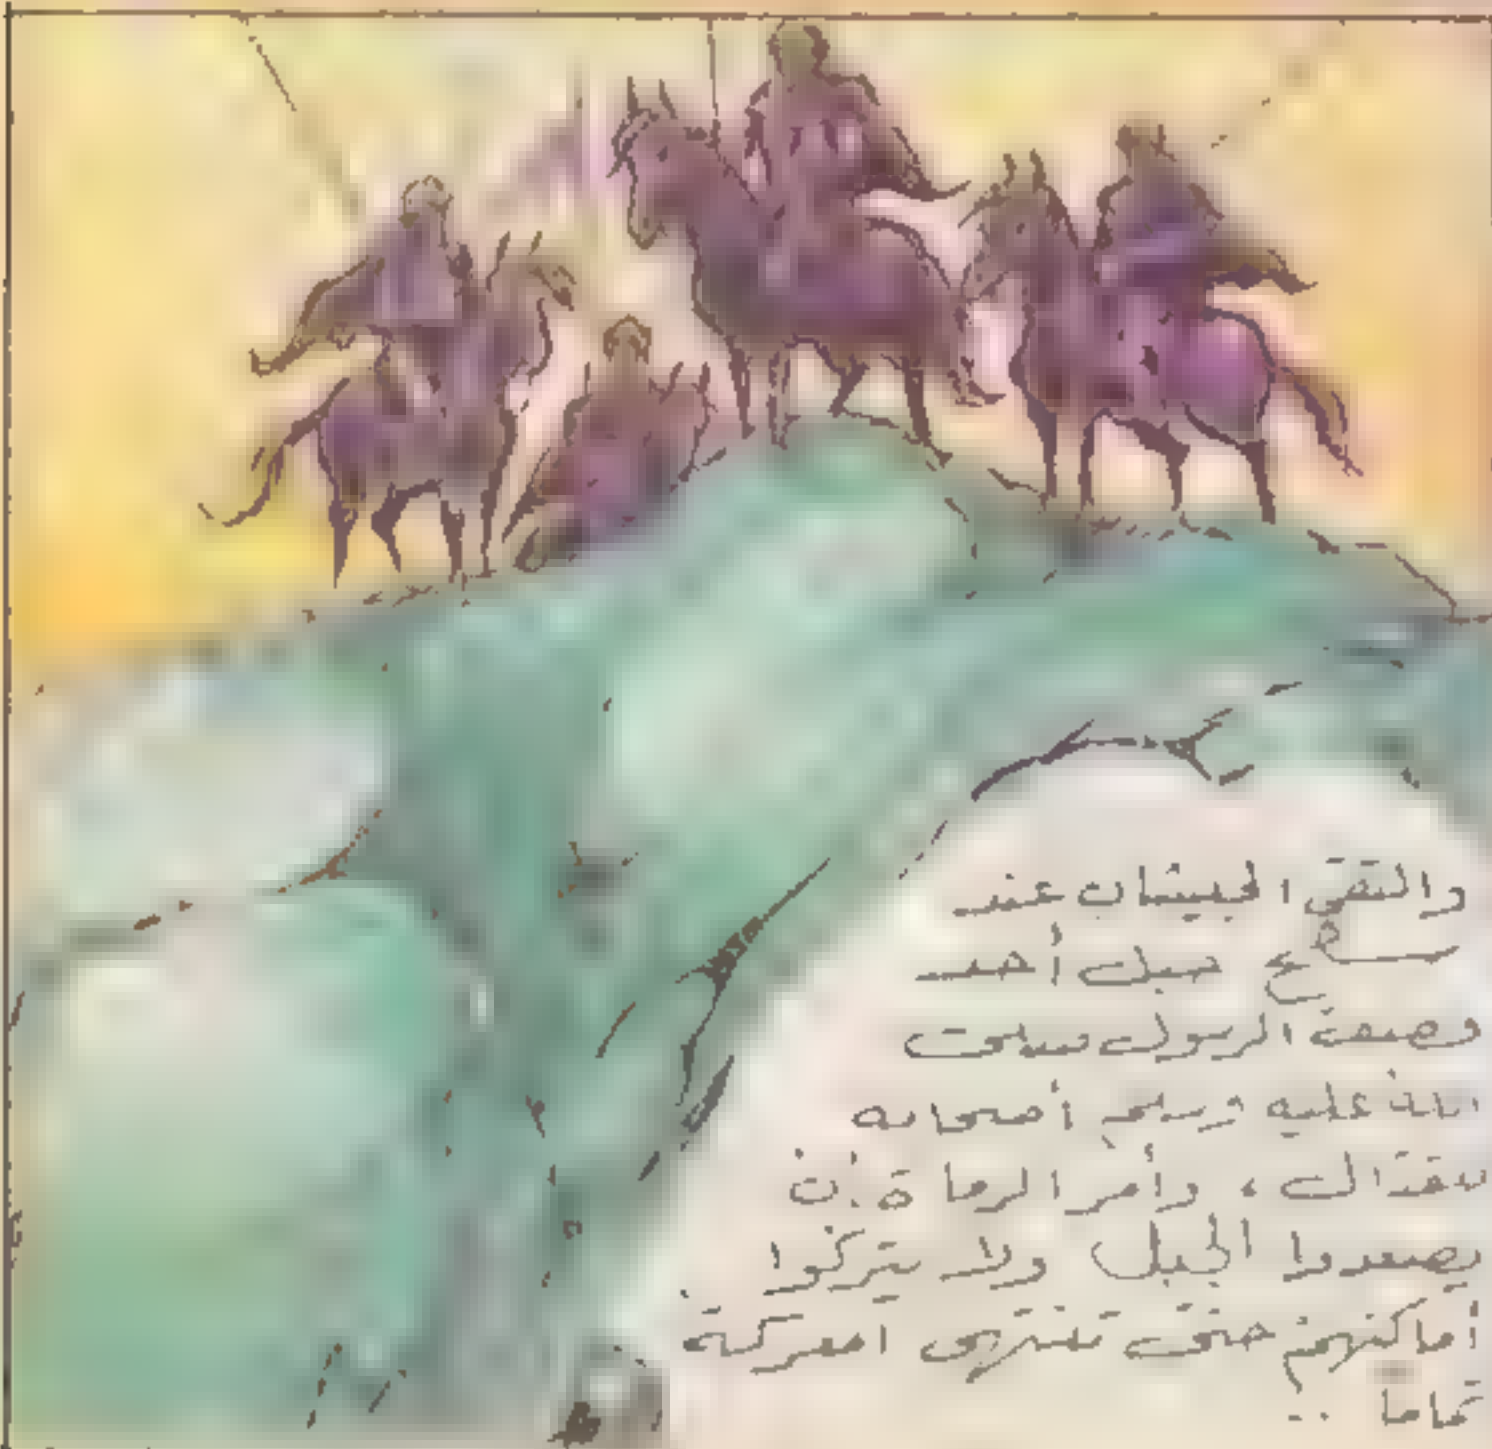 والتقى الجيشان عند
سفح جبل أحد
وصف الرسول صلى
الله عليه وسلم أصحابه
للقتال ، وأمر الرماة أن
يصعدوا الجبل ولا يتركوا
أماكنهم حتى تنتهى المعركة
تماما ..